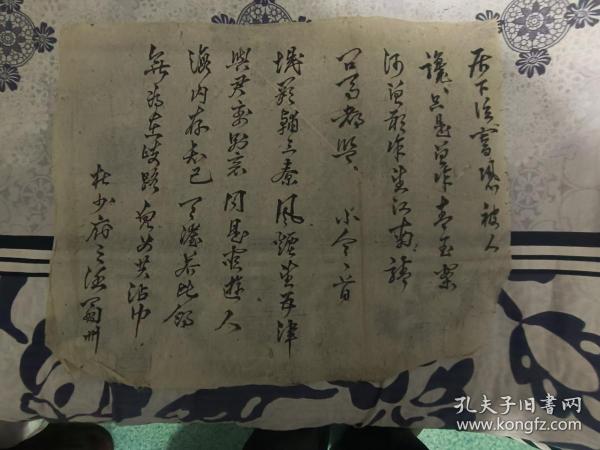 居下後書恐被人
讒只是曾作青玉案
何曾敢作望江南請
問馬都監 小令一首
城闕輔三秦風煙望五津
與君離別意同是宦遊人
海内存知己天涯若比鄰
無為在歧路兒女共沾巾
杜少府之任蜀州
孔夫子旧书网
www.kongfz.com